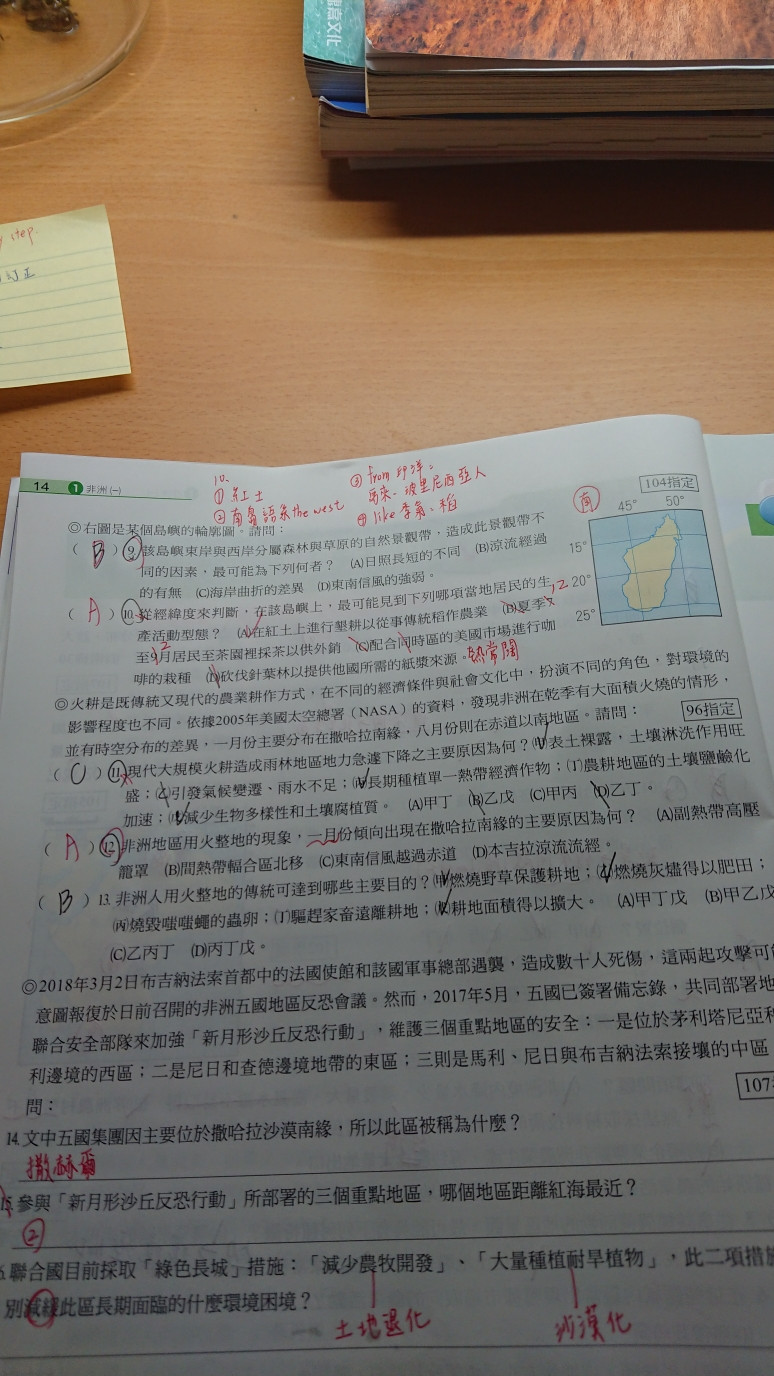 意文化
step.
訂正
14 1 非洲(一)
10.
①紅土
②南島語系 the west
③from 印洋:
馬來、玻里尼西亞人
104指定
南
◎右圖是某個島嶼的輪廓圖。請問:
45° 50°
15°
20°
25°
( B ) 9. 該島嶼東岸與西岸分屬森林與草原的自然景觀帶,造成此景觀帶不
同的因素,最可能為下列何者? (A)日照長短的不同 (B)涼流經過
的有無 (C)海岸曲折的差異 (D)東南信風的強弱。
( A ) 10. 從經緯度來判斷,在該島嶼上,最可能見到下列哪項當地居民的生
產活動型態? (A)在紅土上進行墾耕以從事傳統稻作農業 (B)夏季
至9月居民至茶園裡採茶以供外銷 (C)配合同時區的美國市場進行咖
啡的栽種 (D)砍伐針葉林以提供他國所需的紙漿來源。熱常闊
12
2
◎火耕是既傳統又現代的農業耕作方式,在不同的經濟條件與社會文化中,扮演不同的角色,對環境的
影響程度也不同。依據2005年美國太空總署(NASA)的資料,發現非洲在乾季有大面積火燒的情形,
並有時空分布的差異,一月份主要分布在撒哈拉南緣,八月份則在赤道以南地區。請問: 96指定
( C ) 11. 現代大規模火耕造成雨林地區地力急遽下降之主要原因為何?(甲)表土裸露,土壤淋洗作用旺
盛;(乙)引發氣候變遷、雨水不足;(丙)長期種植單一熱帶經濟作物;(丁)農耕地區的土壤鹽鹼化
加速;(戊)減少生物多樣性和土壤腐植質。 (A)甲丁 (B)乙戊 (C)甲丙 (D)乙丁。
( A ) 12. 非洲地區用火整地的現象,一月份傾向出現在撒哈拉南緣的主要原因為何? (A)副熱帶高壓
籠罩 (B)間熱帶輻合區北移 (C)東南信風越過赤道 (D)本吉拉涼流流經。
( B ) 13. 非洲人用火整地的傳統可達到哪些主要目的?(甲)燃燒野草保護耕地;(乙)燃燒灰燼得以肥田;
(丙)燒毀嗤嗤蠅的蟲卵;(丁)驅趕家畜遠離耕地;(戊)耕地面積得以擴大。 (A)甲丁戊 (B)甲乙戊
(C)乙丙丁 (D)丙丁戊。
◎2018年3月2日布吉納法索首都中的法國使館和該國軍事總部遇襲,造成數十人死傷,這兩起攻擊可
意圖報復於日前召開的非洲五國地區反恐會議。然而,2017年5月,五國已簽署備忘錄,共同部署地
聯合安全部隊來加強「新月形沙丘反恐行動」,維護三個重點地區的安全:一是位於茅利塔尼亞
利邊境的西區;二是尼日和查德邊境地帶的東區;三則是馬利、尼日與布吉納法索接壤的中區
問: 107
14. 文中五國集團因主要位於撒哈拉沙漠南緣,所以此區被稱為什麼?
撒赫爾
15. 參與「新月形沙丘反恐行動」所部署的三個重點地區,哪個地區距離紅海最近?
②
6. 聯合國目前採取「綠色長城」措施:「減少農牧開發」、「大量種植耐旱植物」,此二項措施
別減緩此區長期面臨的什麼環境困境?
土地退化 沙漠化